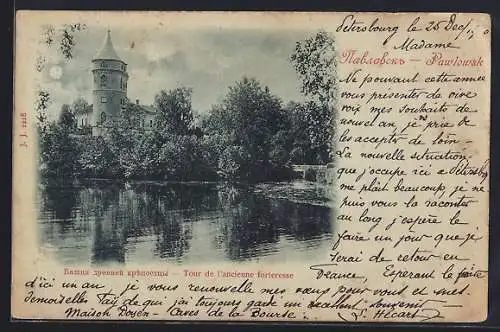 Petersbourg le 25 Dec/
Madame
Павловскъ — Pawlowsk
Ne pouvant cette année
vous présenter de vive
voix mes souhaits de
nouvel an, je vous prie de
les accepter de loin —
La nouvelle situation
que j'occupe ici à Petersbg
me plait beaucoup, je ne
puis vous la raconter
au long j'espère le
faire un jour que je
serai de retour en
France Espérant le faire
Башня древней крѣпостцы — Tour de l'ancienne forteresse
d'ici un an, je vous renouvelle mes vœux pour vous et mes
demoiselles J'ai de qui j'ai toujours gardé un excellent souvenir
Maison Doyen — Caves de la Bourse : L. Hécart
J. J. 1218